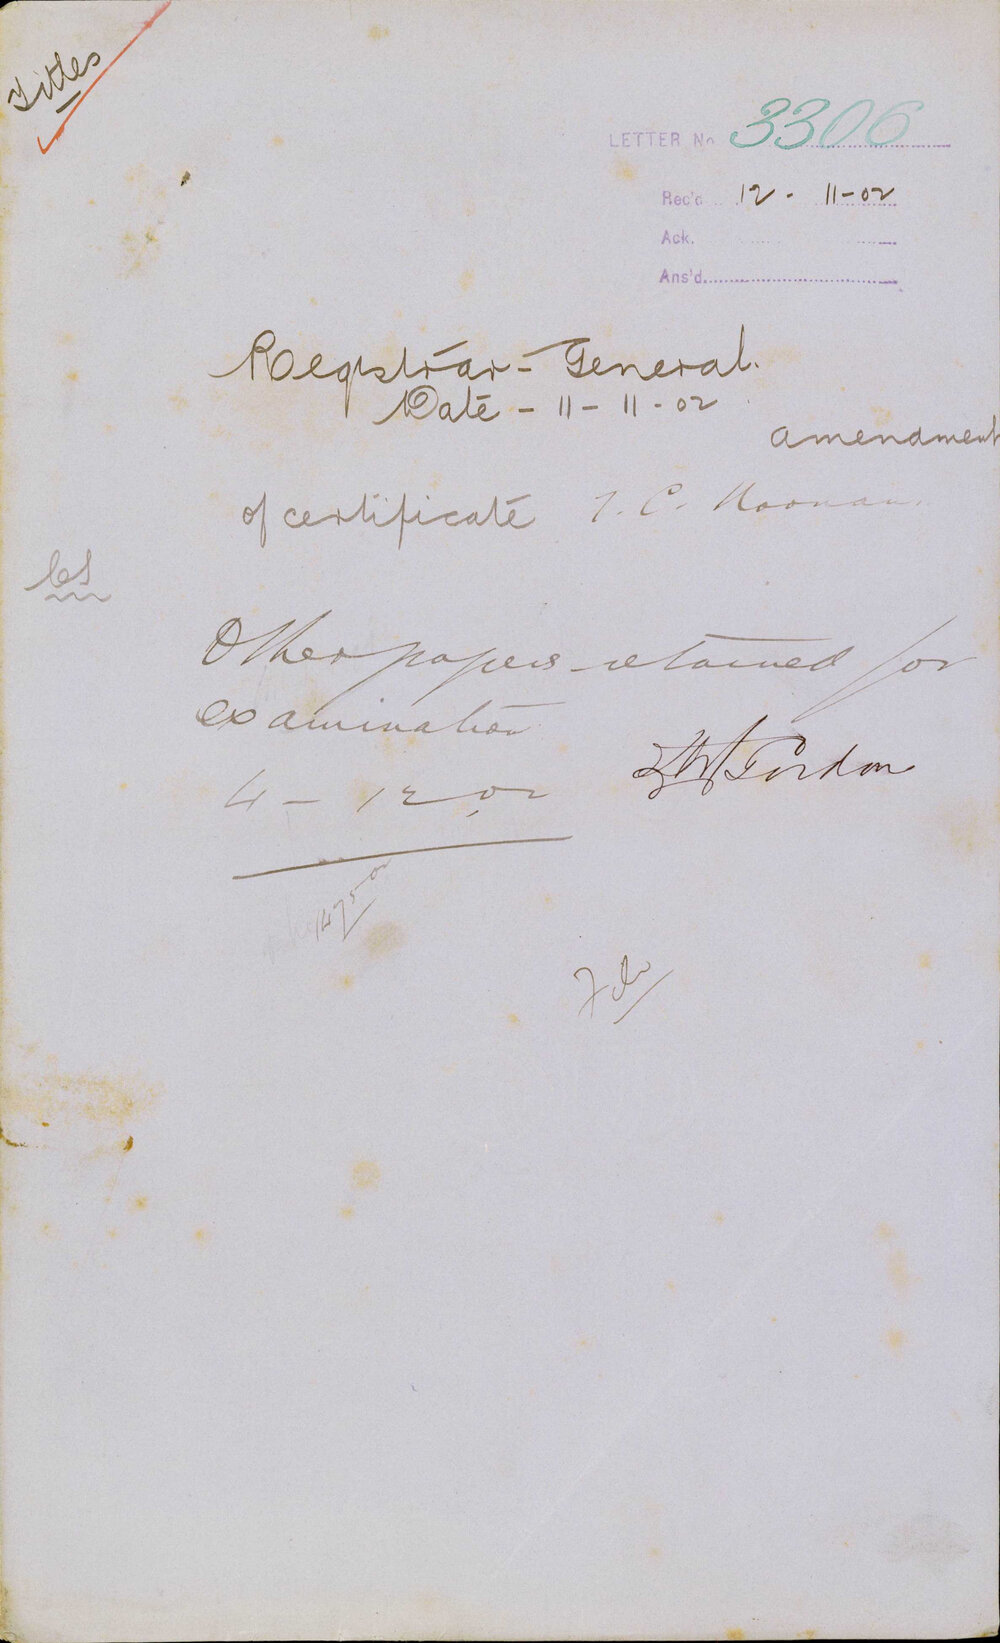 Titles
LETTER No 3306
Rec'd 12 - 11-02
Ack.
Ans'd
Registrar-General.
Date - 11-11-02
amendment
of certificate T. C. Noonan.
Other papers retained for
examination
Gordon
4-12.02